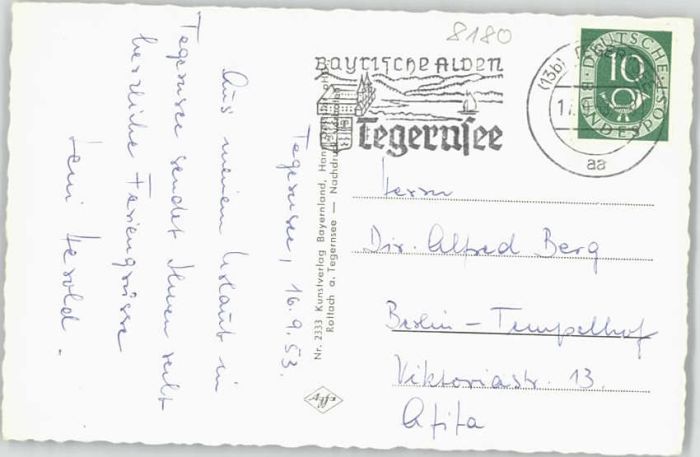 8180
Bayrische Alpen
Tegernsee
(13b) TEGERNSEE
aa
DEUTSCHE BUNDESPOST
10
Tegernsee, 16.9.53.
Aus meinem Urlaub in
Tegernsee sendet Ihnen recht
herzliche Feriengrüsse
Leni Herold.
Nr. 2333 Kunstverlag Bayernland, Han
Rottach a. Tegernsee — Nachdruck
Agfa
Herrn
Dir. Alfred Berg
Berlin - Tempelhof
Viktoriastr. 13.
Afifa